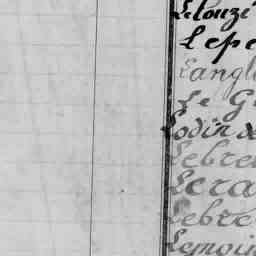 Lelouzé
Lepe
Langl
Le G
Lodin de
Lebre
Lera
Lebre
Lemoin